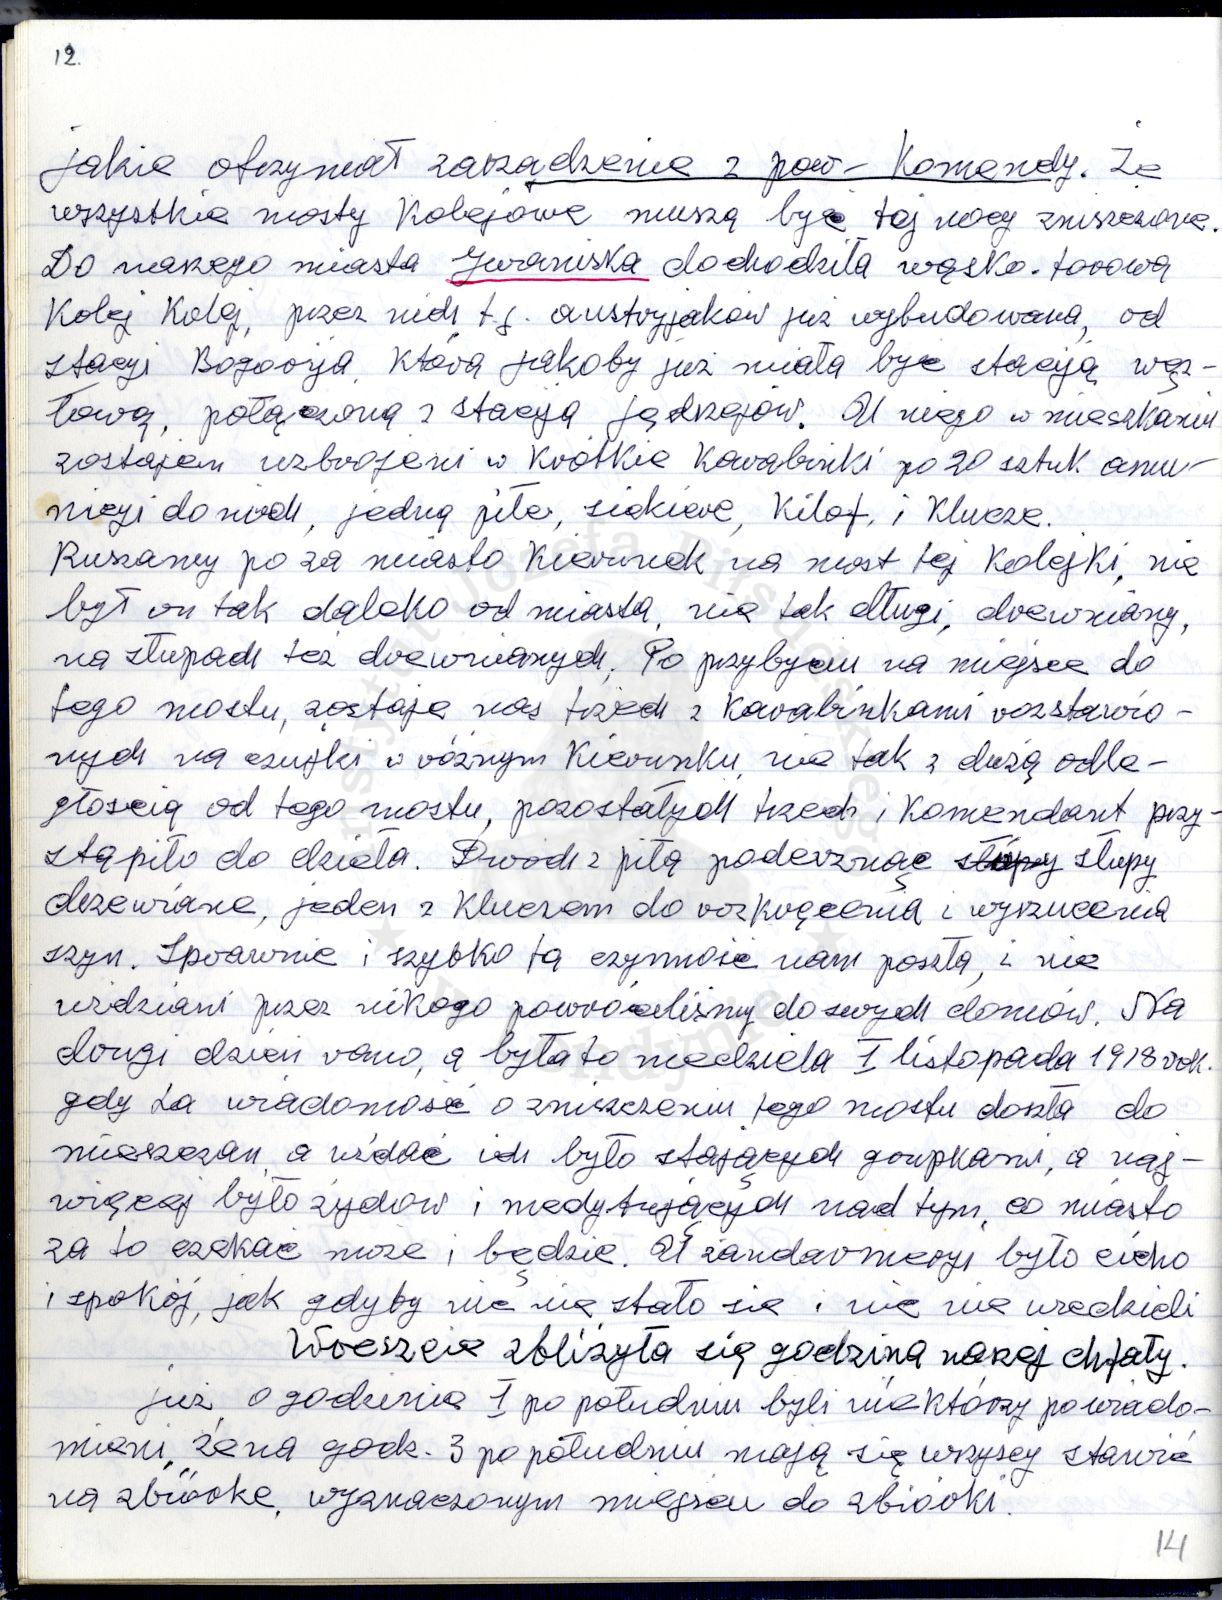 12.
jakie otrzymał zarządzenie z pow- Komendy. Że
wszystkie mosty Kolejowe muszą być tej nocy zniszczone.
Do naszego miasta Iwaniska dochodziła wąsko-torowa
Kolej Kolej, przez nich t.j. austryjaków już wybudowana, od
stacyi Bogorija, Która jakoby już miała być stacyją węz-
łową, połączoną z stacyją Jędrzejów. U niego w mieszkaniu
zostajem uzbrojeni w Krótkie Karabinki po 20 sztuk amu-
nicyi do nich, jedną piłę, siekierę, Kilof, i Klucze.
Ruszamy po za miasto Kierunek na most tej Kolejki, nie
był on tak daleko od miasta, nie tak długi, drewniany,
na słupach też drewnianych. Po przybyciu na miejsce do
tego mostu, zostaje nas trzech z Karabinkami rozstawio-
nych na czujki w różnym Kierunku, nie tak z dużą odle-
głością od tego mostu, pozostałych trzech i Komendant przy-
stąpiło do dzieła. Dwóch z piłą poderznąć słupy słupy
drzewiane, jeden z Kluczem do rozkręcenia i wyrzucenia
szyn. Sprawnie i szybko ta czynność nam poszła, i nie
widziani przez nikogo powróciliśmy do swych domów. Na
drugi dzień rano, a była to niedziela I listopada 1918 rok.
gdy ta wiadomość o zniszczeniu tego mostu doszła do
mieszczan, a widać ich było stających grupkami, a naj-
więcej było żydów i medytujących nad tym, co miasto
za to czekać może i będzie. U żandarmeryi było cicho
i spokój, jak gdyby nic nie stało się i nic nie wiedzieli
Wreszcie zbliżyła się godzina naszej chwały.
już o godzinie I po południu byli niektórzy powiado-
mieni, że na godz. 3 po południu mają się wszyscy stawić
na zbiórkę, wyznaczonym miejscu do zbiórki.
14
Instytut Józefa Piłsudskiego
w Londynie